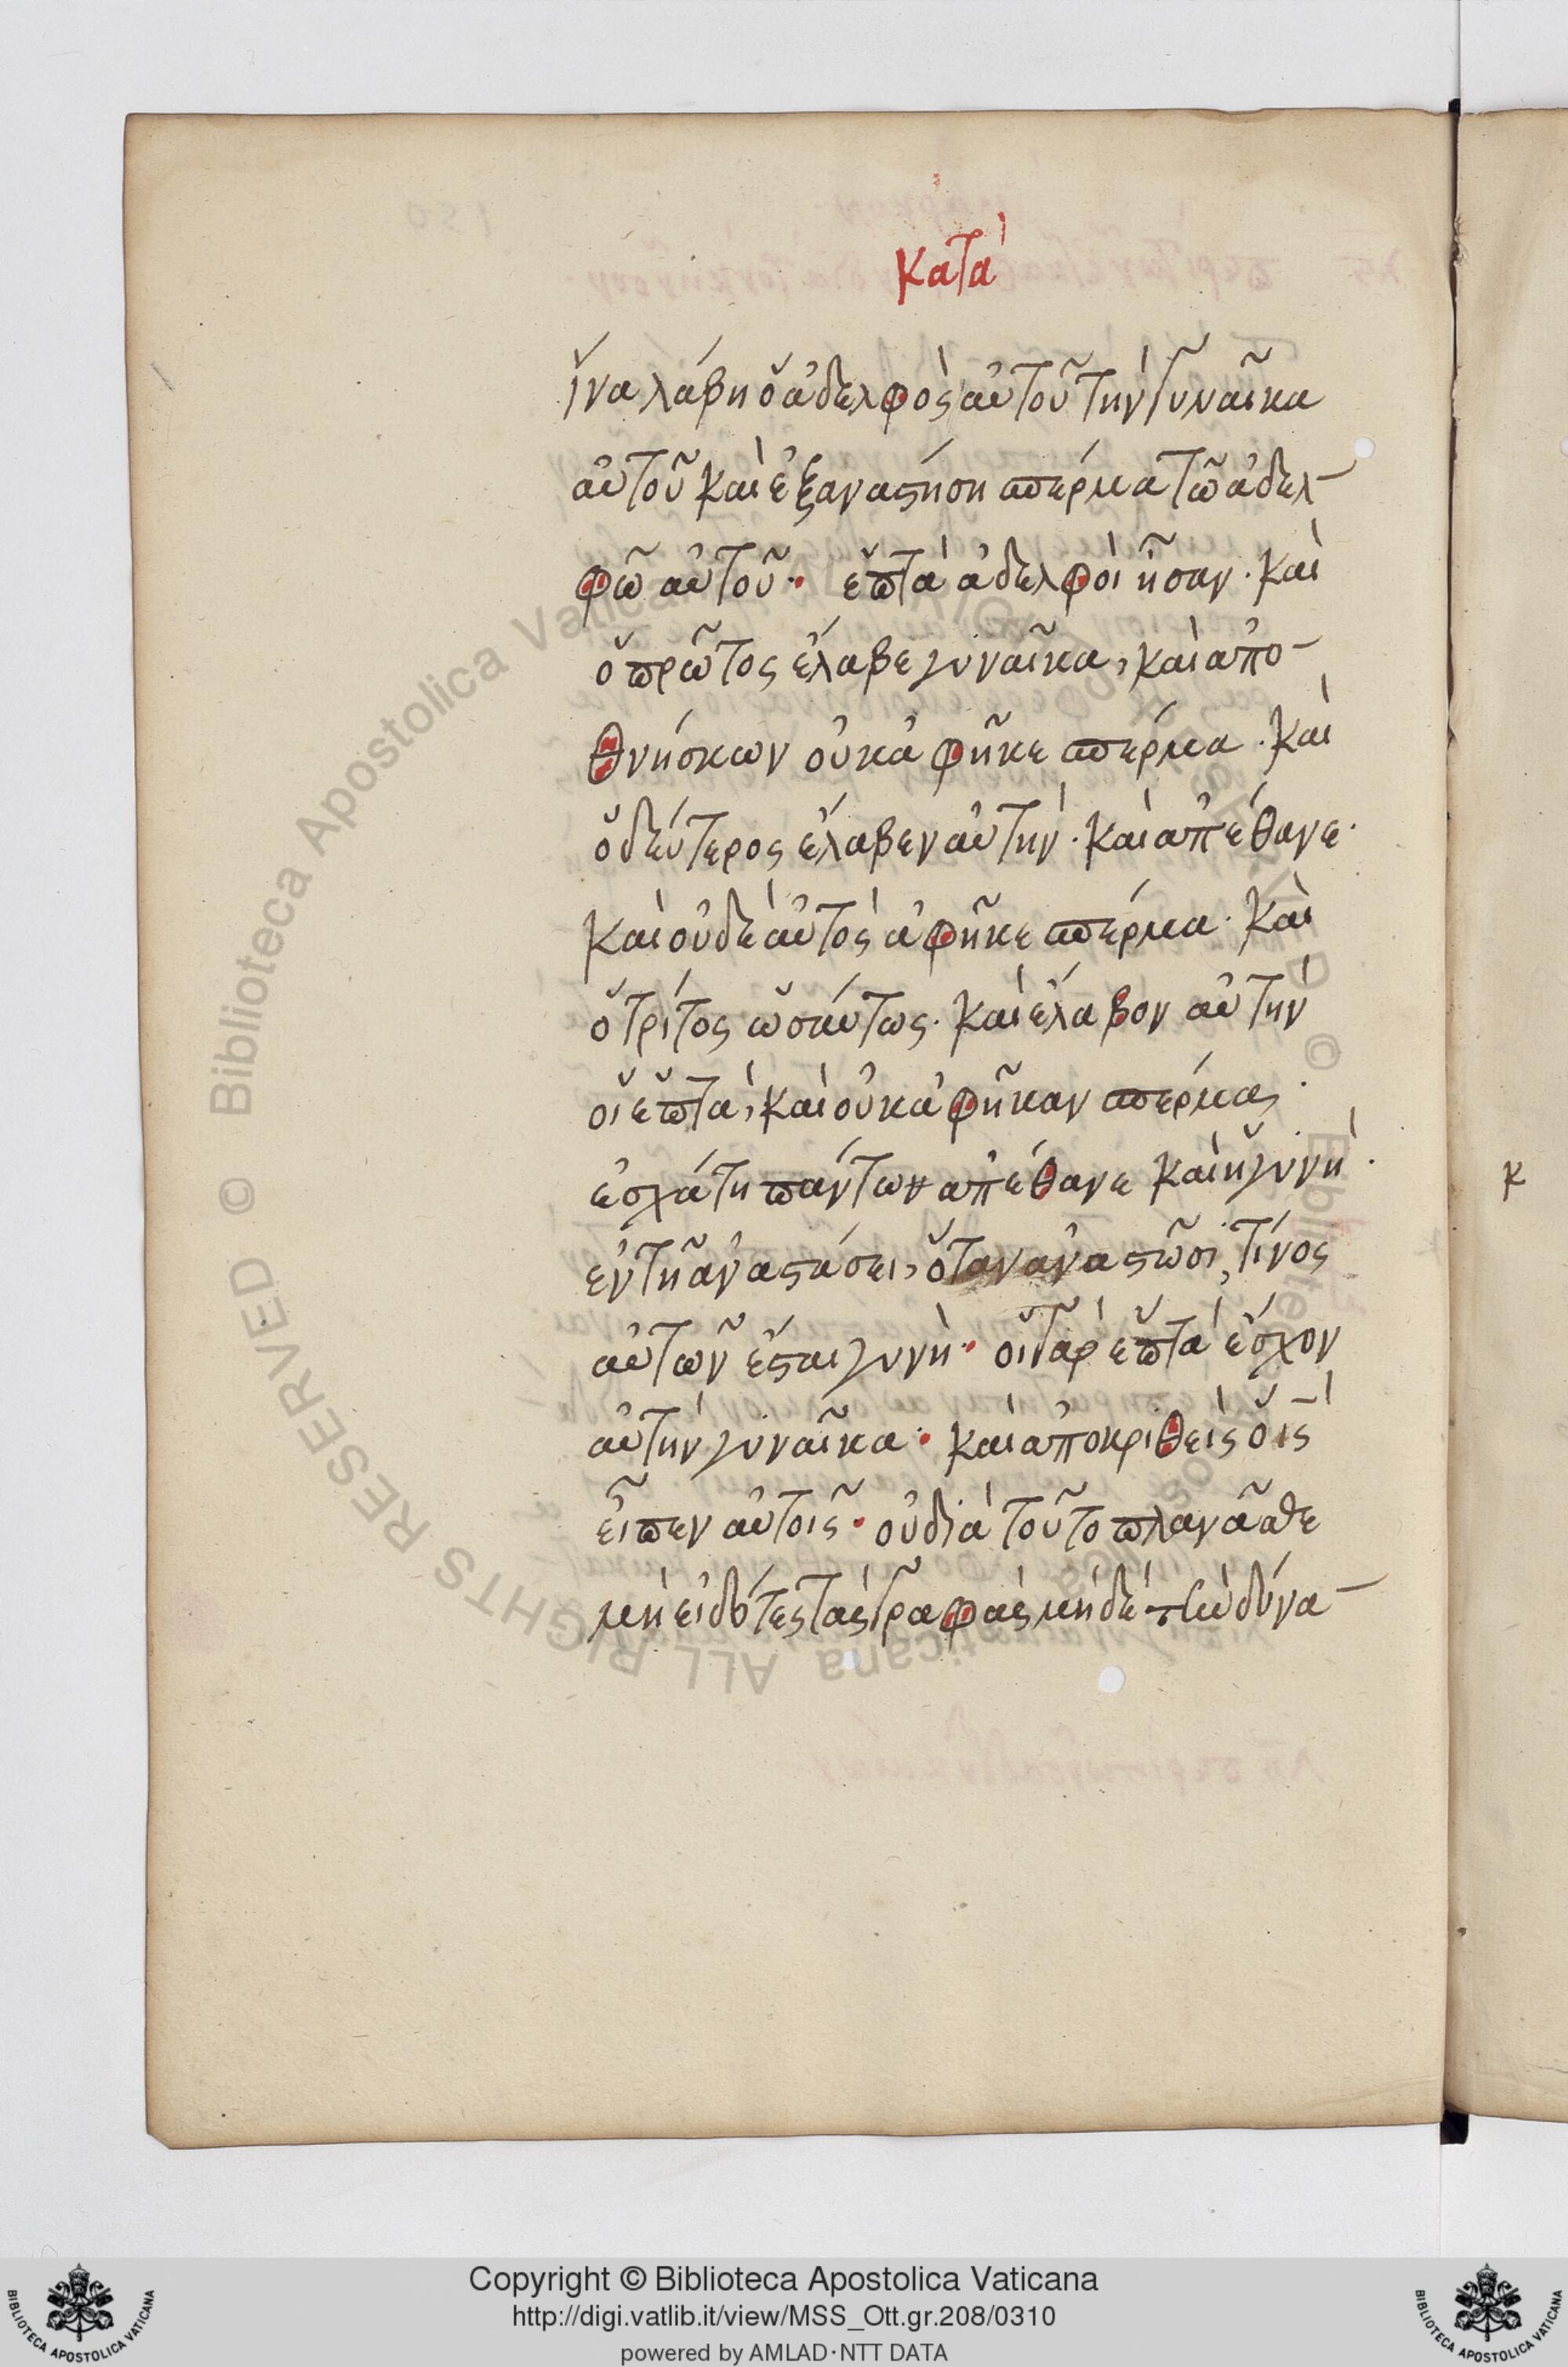 κατὰ
ἵνα λάβη ὁ ἀδελφὸς αὐτοῦ τὴν γυναῖκα
αὐτοῦ καὶ ἐξαναστήση σπέρμα τῶ ἀδελ-
φῶ αὐτοῦ· ἑπτὰ ἀδελφοὶ ἦσαν· καὶ
ὁ πρῶτος ἔλαβε γυναῖκα, καὶ ἀπο-
θνήσκων οὐκ ἀφῆκε σπέρμα· καὶ
ὁ δεύτερος ἔλαβεν αὐτὴν· καὶ ἀπέθανε·
καὶ οὐδὲ αὐτὸς ἀφῆκε σπέρμα· καὶ
ὁ τρίτος ὡσαύτως· καὶ ἔλαβον αὐτὴν
οἱ ἑπτὰ, καὶ οὐκ ἀφῆκαν σπέρμα,
ἐσχάτη πάντων ἀπέθανε καὶ ἡ γυνὴ·
ἐν τῆ ἀναστάσει, ὅταν ἀναστῶσι, τίνος
αὐτῶν ἔσται γυνὴ· οἱ γὰρ ἑπτὰ ἔσχον
αὐτὴν γυναῖκα· καὶ ἀποκριθεὶς ὁ ις
εἶπεν αὐτοῖς· οὐ διὰ τοῦτο πλανᾶσθε
μὴ εἰδότες τὰς γραφὰς μηδὲ τὴν δύνα-
κ
Copyright © Biblioteca Apostolica Vaticana
http://digi.vatlib.it/view/MSS_Ott.gr.208/0310
powered by AMLAD·NTT DATA
BIBLIOTECA APOSTOLICA VATICANA
BIBLIOTECA APOSTOLICA VATICANA
© Biblioteca Apostolica Vaticana ALL RIGHTS RESERVED